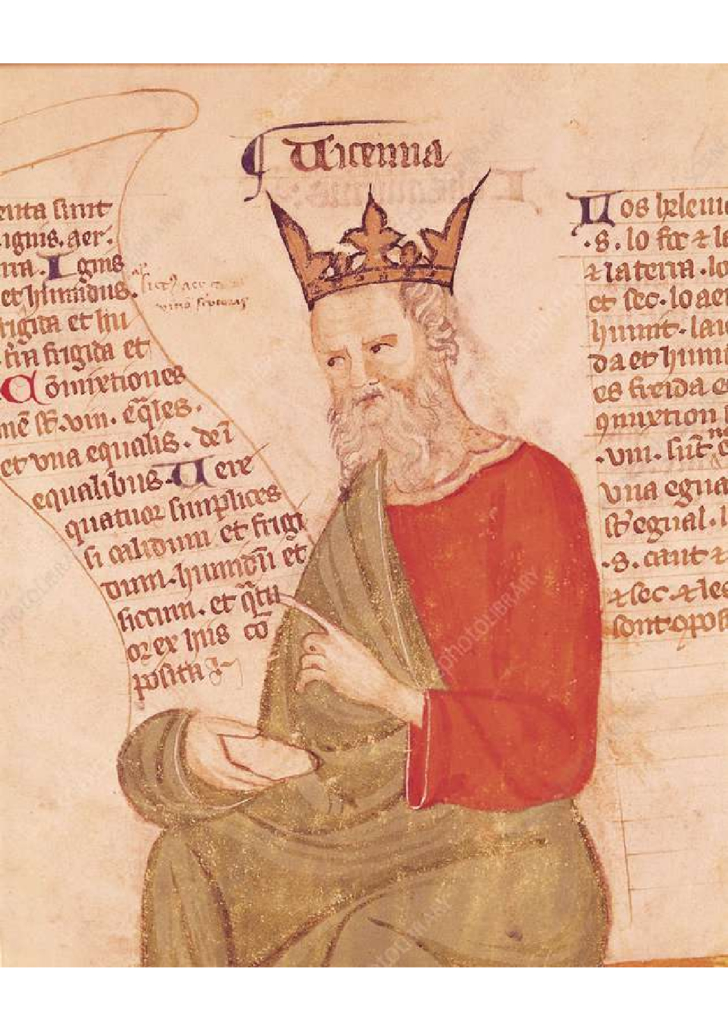 Auicenna
enta sunt
.ignis. aer.
rra. Ignis
et humidus.
rigida et hu
frigida et
Cōmixtiones
mē st̄. viii. eq̄les.
et vna equalis. de ī
equalibus. Uere
quatuor simplices
si calidum et frigi
dum. humidū et
siccum. et q̄tu
or ex hiis cō
posita
Nos
.s. lo foc ⁊ l
⁊ la terra. lo
et sec. lo ae
humit. la
da et humi
es freida e
mixtion
.viii. sūt
vna egua
st̄ egual. l
.s. caut ⁊
⁊ sec. ⁊ le
sont opos